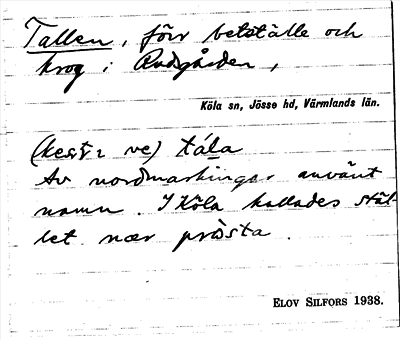 Tallen, förr betställe och
krog i Rudsgården,
Köla sn, Jösse hd, Värmlands län.
ve) tála
Av nordmarkingar använt
namn. I Köla kallades stäl-
let nær prösta.
ELOV SILFORS 1938.